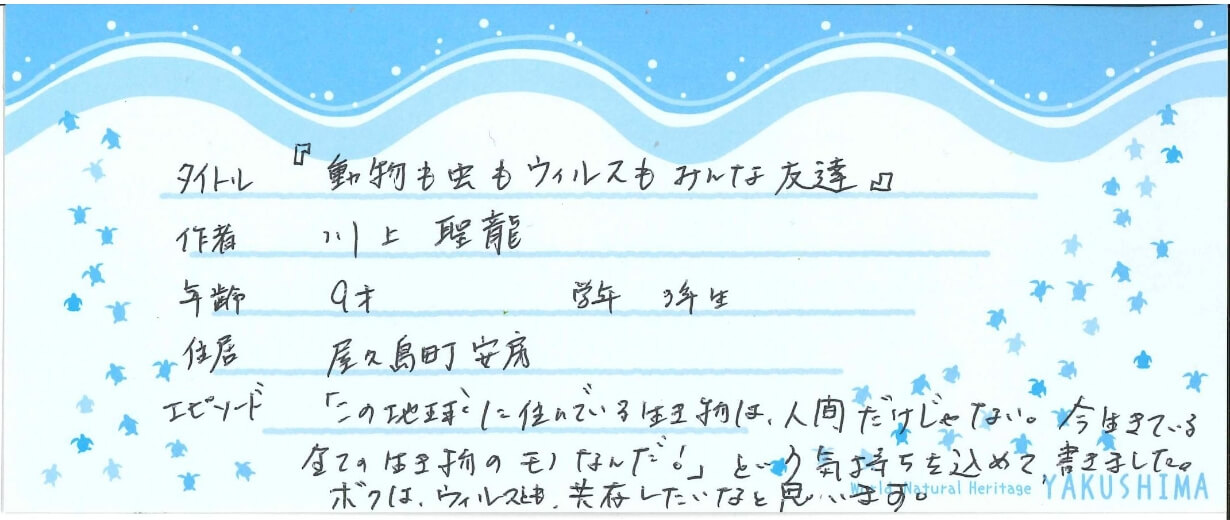 タイトル 『動物も虫もウィルスもみんな友達』
作者 川上 聖龍
年齢 9才 学年 3年生
住居 屋久島町安房
エピソード 「この地球に住んでいる生き物は、人間だけじゃない。今生きている
全ての生き物のモノなんだ!」という気持ちを込めて書きました。
ボクは、ウィルスとも、共存したいなと思います。
World Natural Heritage YAKUSHIMA